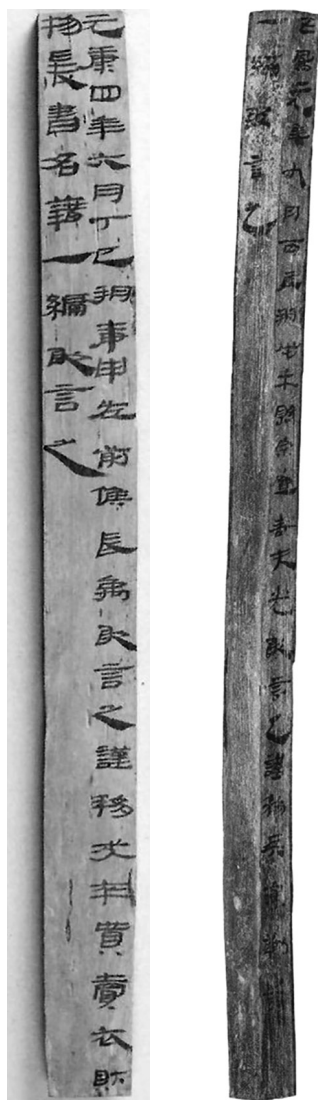 元康四年六月丁巳朔庚申左前候長禹敢言之謹移戍卒貰賣衣財
物爰書名籍一編敢言之
年九月朔嗇夫光敢言之謹移
一編敢言之